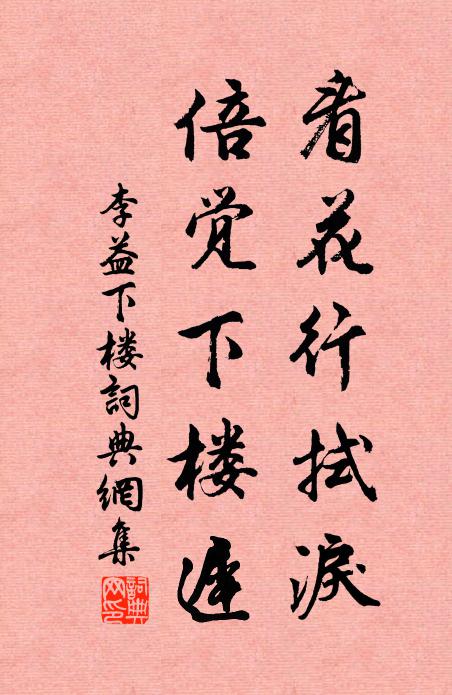 看花行拭淚
倍觉下楼遲
李益下楼詞典網集
詞典网印